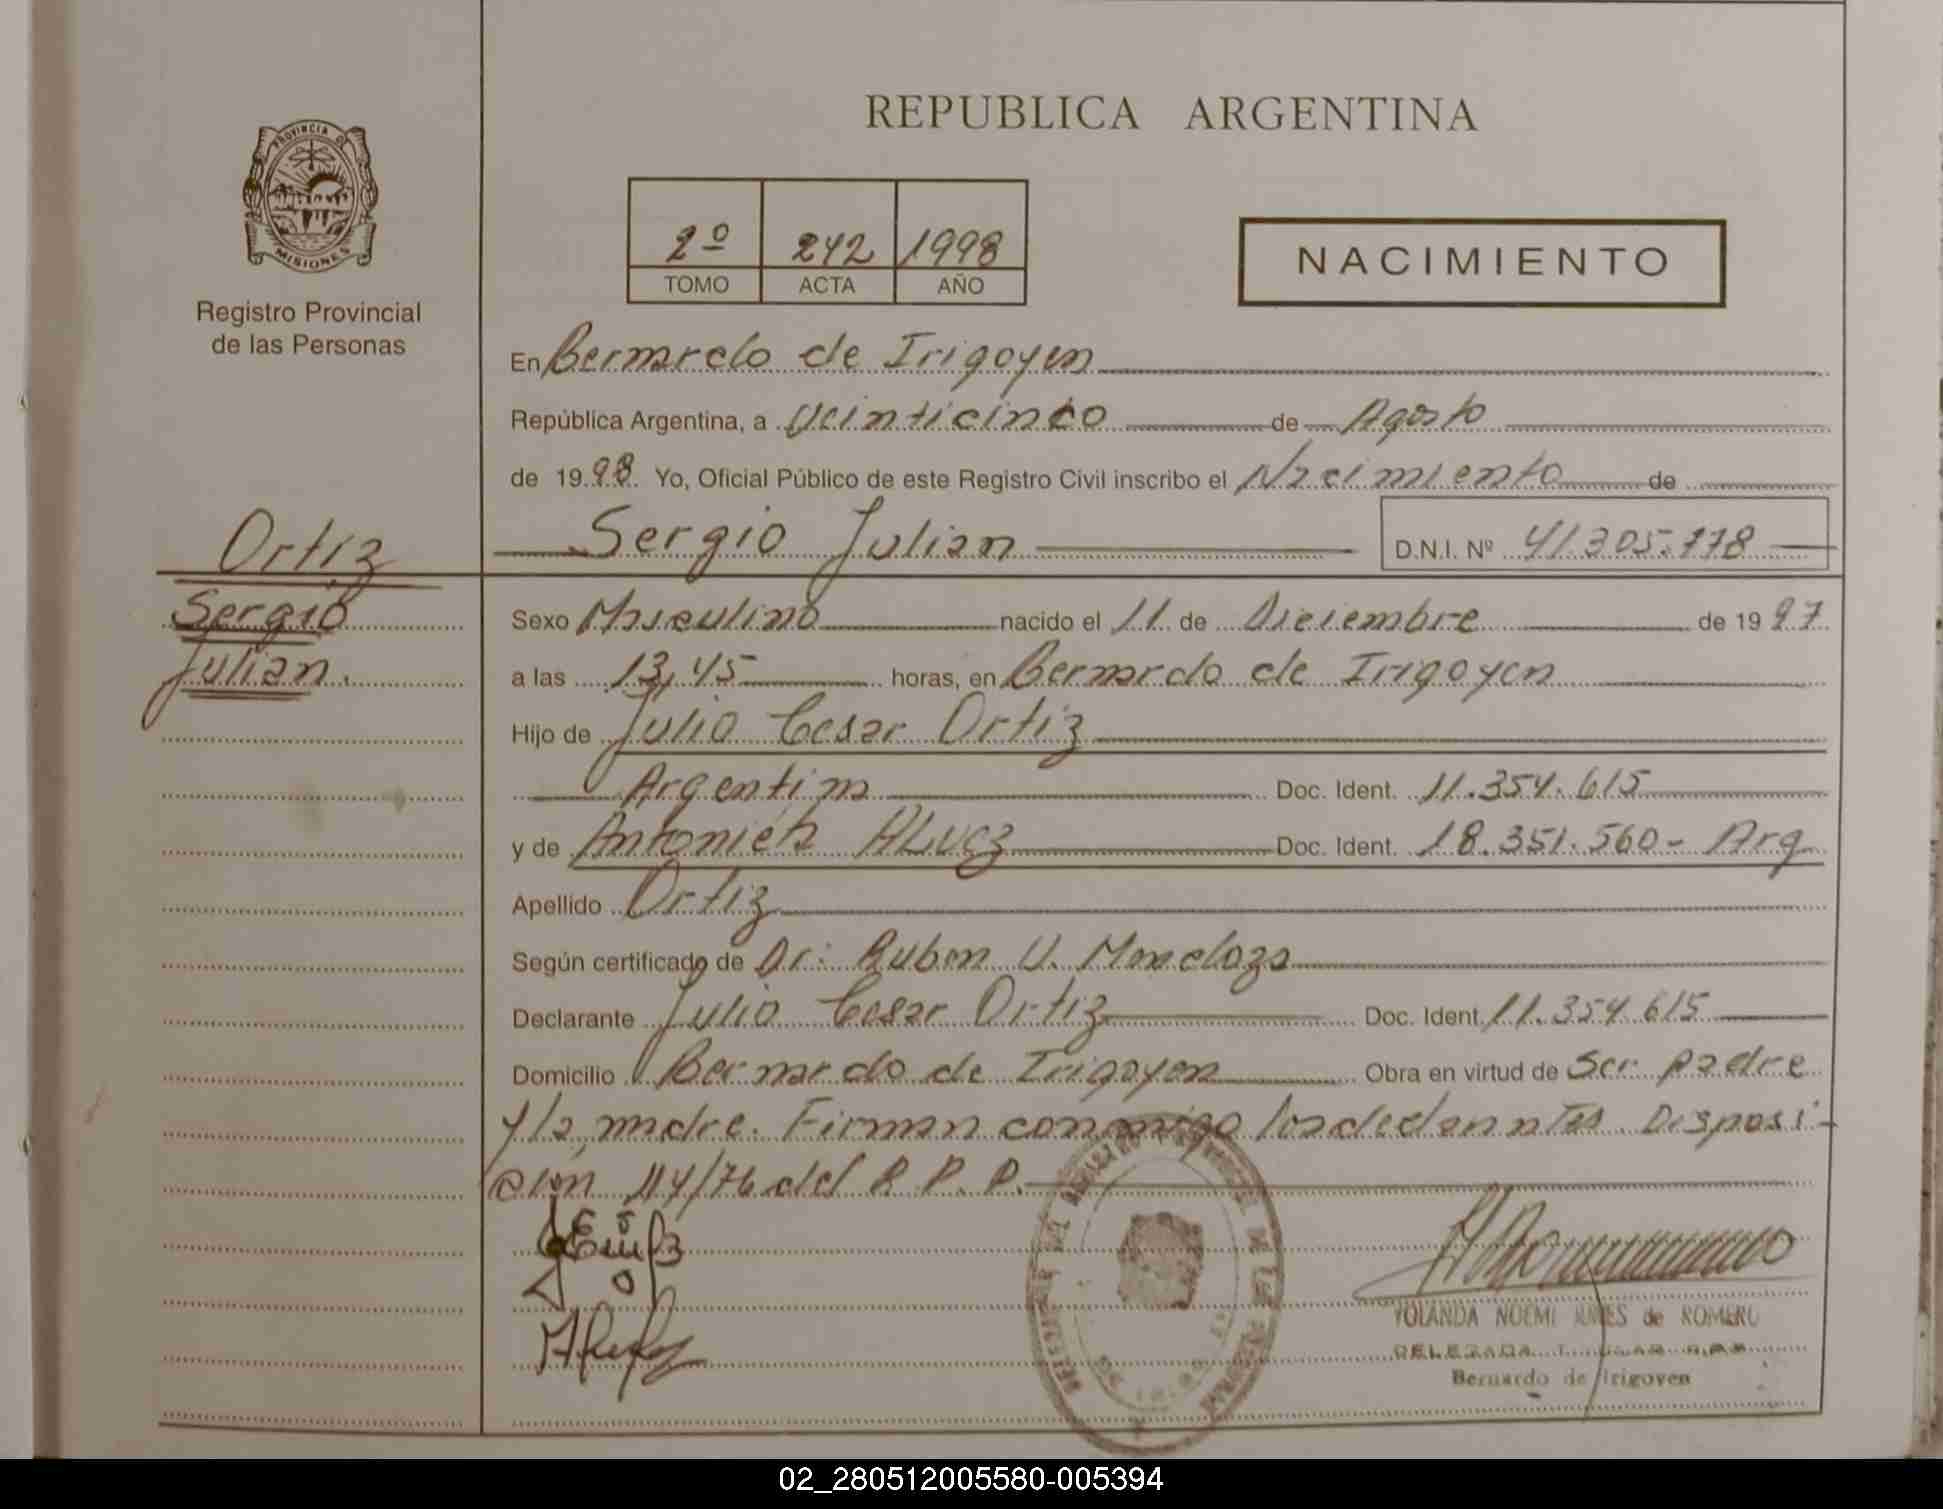 REPUBLICA ARGENTINA
PROVINCIA DE
MISIONES
Registro Provincial
de las Personas
2º 242 1998
TOMO ACTA AÑO
NACIMIENTO
En Bernardo de Irigoyen
República Argentina, a Veinticinco de Agosto
de 1998. Yo, Oficial Público de este Registro Civil inscribo el Nacimiento de
Ortiz
Sergio Julian D.N.I. Nº 41.305.778
Sergio
Julian.
Sexo Masculino nacido el 11 de Diciembre de 1997
a las 13,45 horas, en Bernardo de Irigoyen
Hijo de Julio Cesar Ortiz
Argentina Doc. Ident. 11.354.615
y de Antonieta Doc. Ident. 18.351.560- Arg
Apellido Ortiz
Según certificado de Dr: Ruben V. Mendoza
Declarante Julio Cesar Ortiz Doc. Ident. 11.354.615
Domicilio Bernardo de Irigoyen Obra en virtud de Ser padre
y la madre. Firman conmigo los declarantes. Disposi-
cion 114/76 del R.P.P.
YOLANDA NOEMI de ROMERO
DELEGADA
Bernardo de Irigoyen
02_280512005580-005394